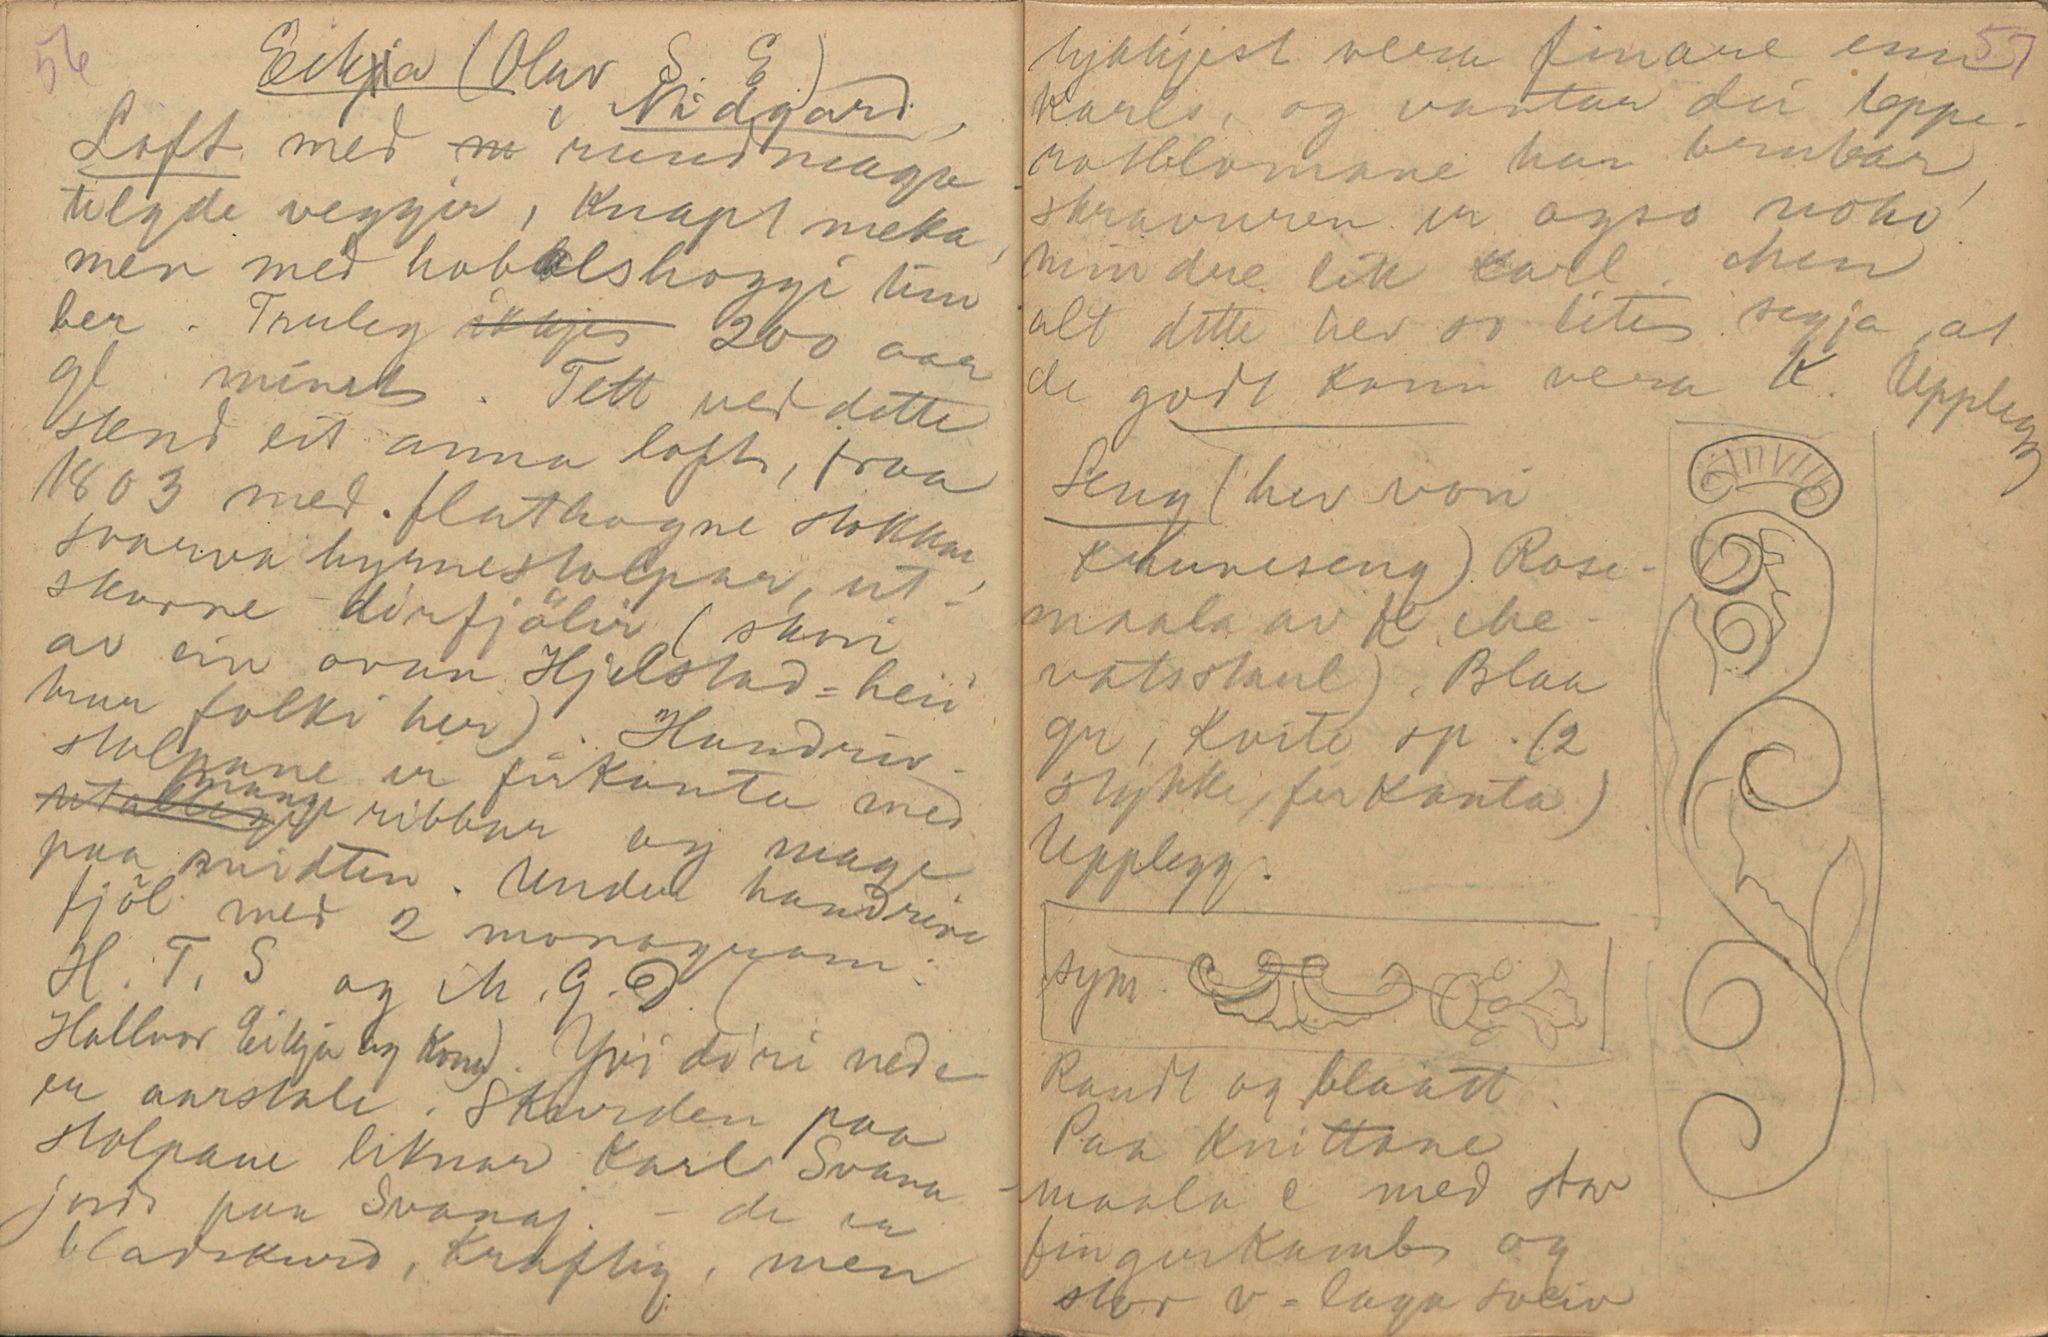 56
Eikja (Olav S. E.)
i Nidgard.
Loft med rundmaga
telgde veggir, knapt meka,
men med hoblshoggi tim
ber. Truleg ikkje 200 aar
gl minst. Tett ved dette
stend eit anna loft, fraa
1803 med flathogne stokkar,
svarva hyrnestolpar, ut-
skorne dirfjölir (skori
av ein ovan Hjelstad=heii
trur folki her). Handriv-
stolpane er firkanta med
utallige mange ribbur og mage
paa midten. Under handriva
fjöl med 2 monogram:
H. T. S og M. G. D. (
Hallvor Eikja og Kona). Yvi döri nede
er aarstale. Skurden paa
stolpane liknar Karl Svana
jords paa Svanaj. - de er
bladskurd, kraftig, men
57
tykkjest vera finare enn
Karls, og vantar dei teppe-
rotblomane han brukar,
skravuren er ogso noko
mindre lik Karl. Men
alt dette hev so lite segja at
de godt kann vera K. Upplegg
Seng (hev vori
kruneseng) Rose-
maala av K. Me-
vatsstaul). Blaa
gr, kvite sp. (2
stykke, firkanta)
Upplegg.
sym.
Raudt og blaatt.
Paa knittane
maala C med stor
fingerkamb og
stor v=laga sveiv